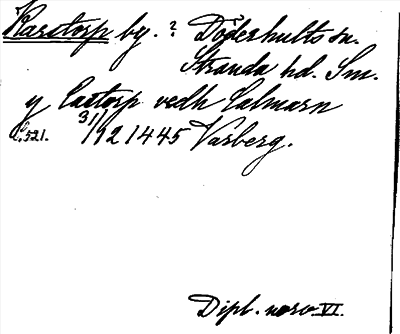 Karstorp by. ? Döderhults sn.
Stranda hd. Sm.
y Castorp vedh Calmarn
s. 521. 31/12 1445 Varberg.
Dipl. norv VI.